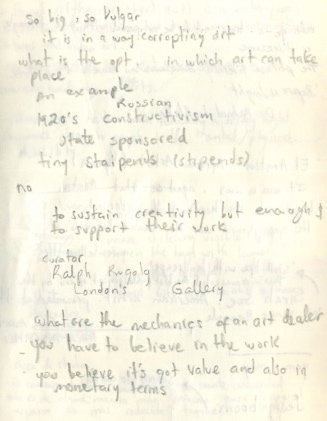 so big, so vulgar
it is in a way corropting art
what is the opt. in which art can take
place
an example
Rossian
1920's constructivism
state sponsored
tiny staipends (stipends)
no
to sustain creativity but enough $
to support their work
curator
Ralph Rugolg
London's Gallery
what are the mechanics of an art dealer
- you have to believe in the work
- you believe it's got value and also in
monetary terms